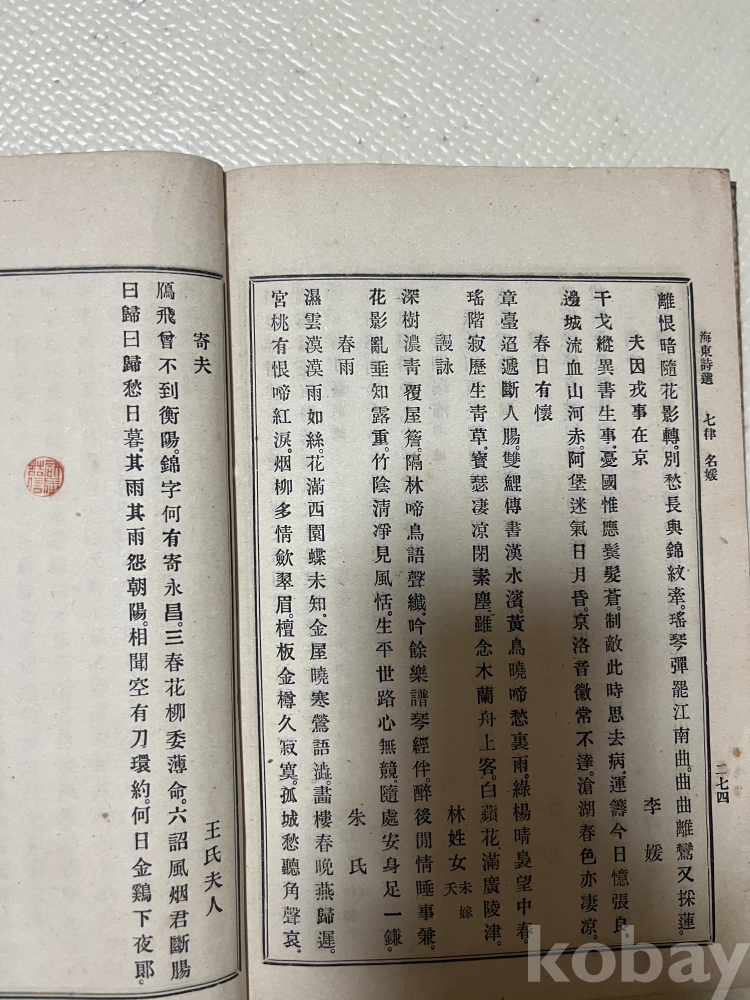 海東詩選 七律 名媛 二七四
離恨暗隨花影轉。別愁長與錦紋牽。瑤琴彈罷江南曲。曲曲離鸞又採蓮。
夫因戎事在京 李媛
干戈縱異書生事。憂國惟應鬓髮蒼。制敵此時思去病。運籌今日憶張良。
邊城流血山河赤。阿堡迷氣日月昏。京洛音徽常不達。滄湖春色亦凄凉。
春日有懷
章臺迢遞斷人腸。雙鯉傳書漢水濱。黃鳥曉啼愁裏雨。綠楊晴裊望中春。
瑤階寂歷生靑草。寶瑟凄凉閉素塵。雖念木蘭舟上客。白蘋花滿廣陵津。
謾詠 林姓女 未嫁夭
深樹濃靑覆屋簷。隔林啼鳥語聲纖。吟餘樂譜琴經伴。醉後閒情睡事兼。
花影亂垂知露重。竹陰淸凈見風恬。生平世路心無競。隨處安身足一鎌。
春雨 朱氏
濕雲漠漠雨如絲。花滿西園蝶未知。金屋曉寒鶯語澁。畵樓春晚燕歸遲。
宮桃有恨啼紅淚。烟柳多情斂翠眉。檀板金樽久寂寞。孤城愁聽角聲哀。
寄夫 王氏夫人
鴈飛曾不到衡陽。錦字何有寄永昌。三春花柳委薄命。六詔風烟君斷腸
曰歸曰歸愁日暮。其雨其雨怨朝陽。相聞空有刀環約。何日金鷄下夜郞。
kobay